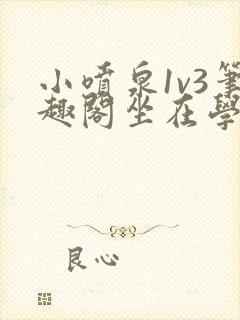 小噴泉1v3筆
趣閣坐在學
良心